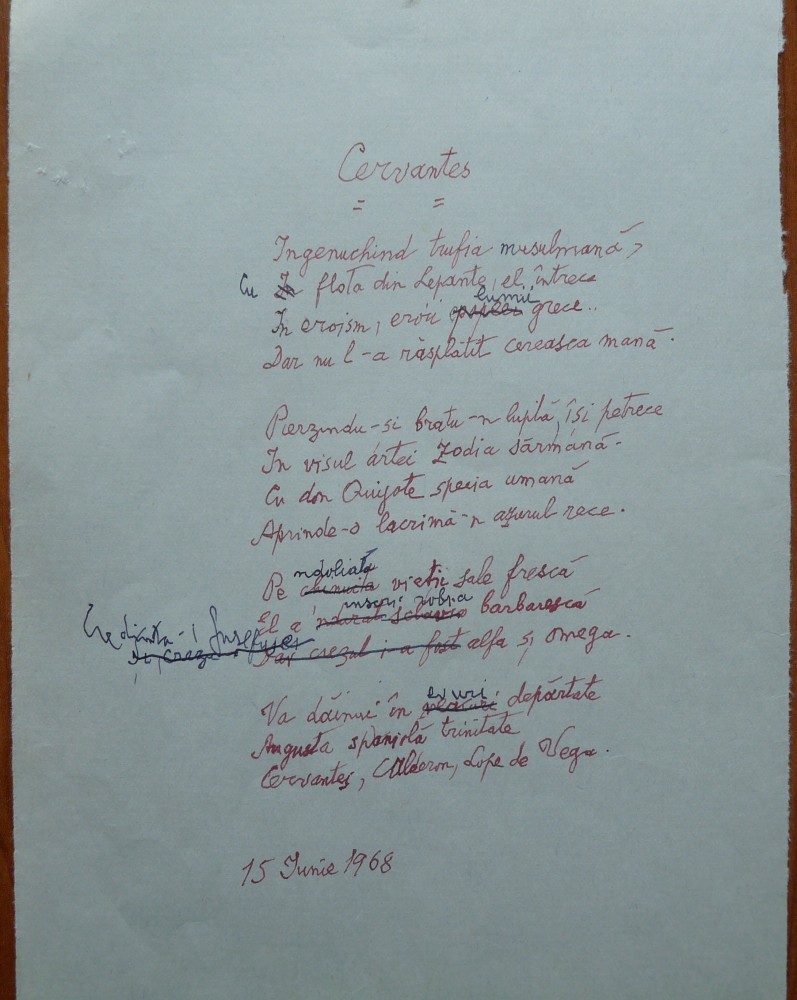 Cervantes
Ingenuchind trufia musulmană,
Cu In flota din Lepante, el întrece
lumii
In eroism, eroii grece..
Dar nu l-a răsplătit cereasca mană.
Pierzindu-si bratu-n luptă, îsi petrece
In visul artei Zodia sărmană.
Cu don Quijote specia umană
Aprinde-o lacrimă-n azurul rece.
ndoliata
Pe vietii sale frescă
inscris robia
El a barbarescă
Credinta-i
Dar crezul i-a fost alfa și omega.
evuri
Va dăinui în depărtate
Augusta spaniolă trinitate
Cervantes, Calderon, Lope de Vega.
15 Iunie 1968